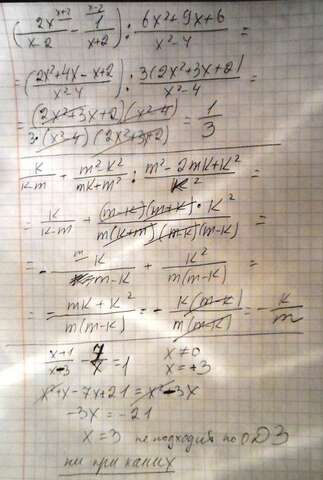 (2x^{x+2}/(x-2) - 1^{x-2}/(x+2)) : (6x²+9x+6)/(x²-4) =
= ((2x²+4x-x+2)/(x²-4)) : 3(2x²+3x+2)/(x²-4) =
= (2x²+3x+2)(x²-4)/(3·(x²-4)(2x²+3x+2)) = 1/3
k/(k-m) + (m²-k²)/(mk+m²) : (m²-2mk+k²)/k² =
= k/(k-m) + (m-k)(m+k)·k²/(m(k+m)(m-k)(m-k)) =
= - mk/(m-k) + k²/(m(m-k)) =
= = (mk+k²)/(m(m-k)) = - k(m-k)/(m(m-k)) = - k/m
(x+1)/(x-3) - 7/x = 1 x≠0
x=+3
x²+x-7x+21 = x²-3x
-3x = -21
x = 3 не подходит по ОДЗ
ни при каких